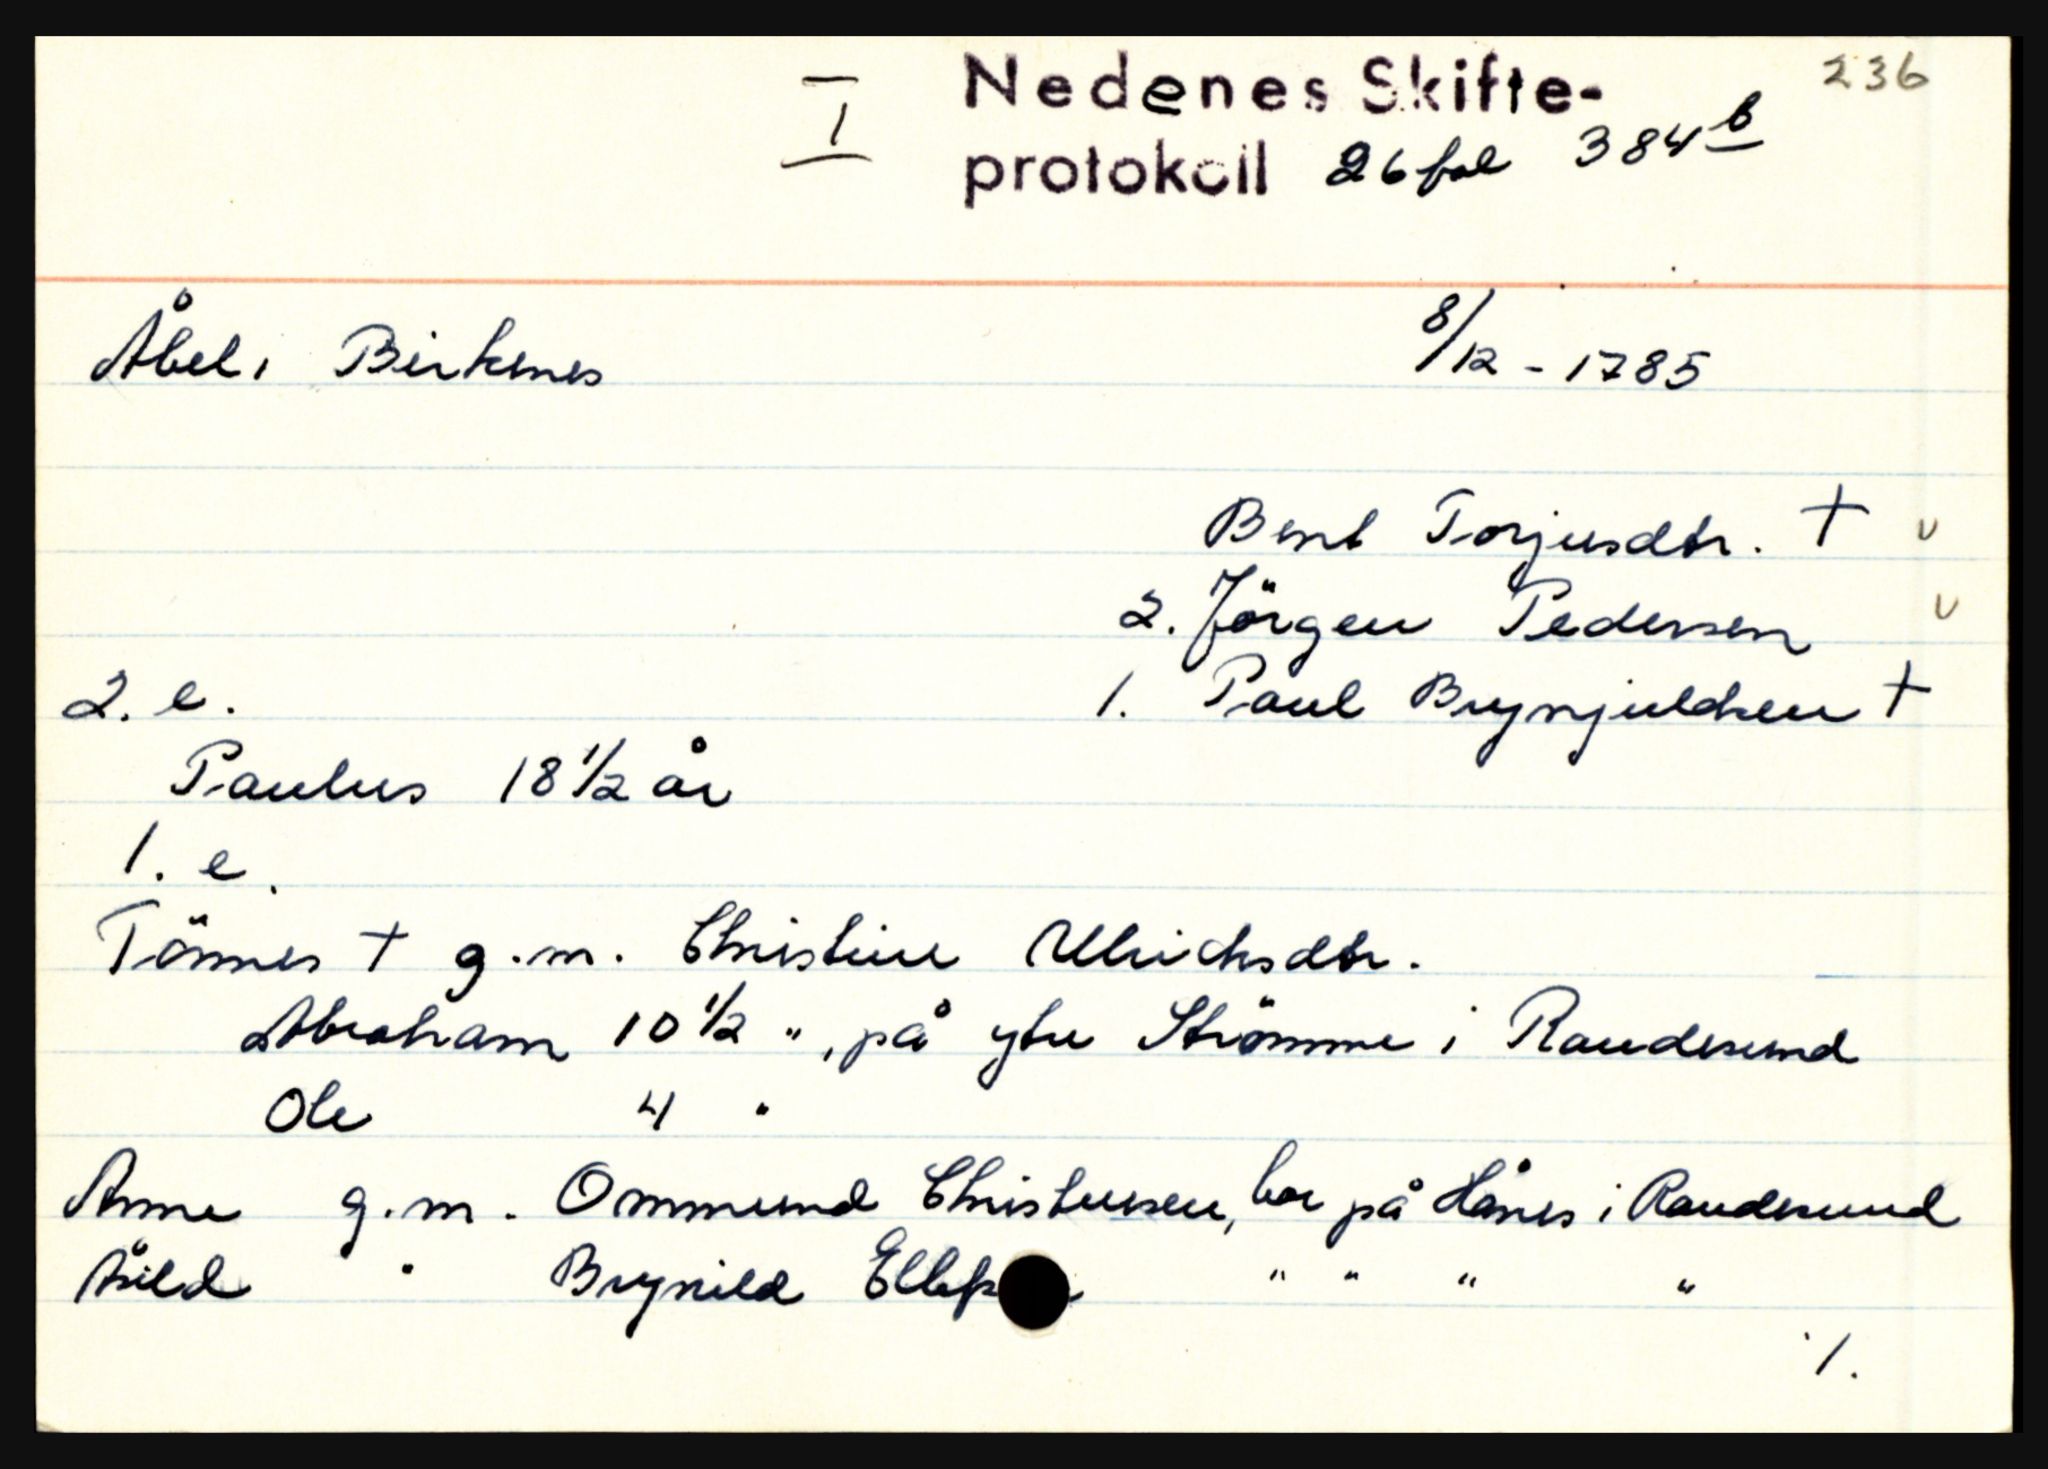 236
I Nedenes Skifte-
protokoll 26 fol 384 b
Åbel, Birkenes 8/12 - 1785
Bent Torjusdtr. † v
2. Jörgen Pedersen v
2. e. 1. Paul Brynjuldsen †
Paulus 18 1/2 år
1. e.
Tönnes † g.m. Christine Ulrichsdtr.
Abraham 10 1/2 ", på ytre Strömme i Randesund
Ole 4 "
Anne g.m. Ommund Christensen, bor på Hånes i Randesund
Åsild " Brynild " " " "
./.